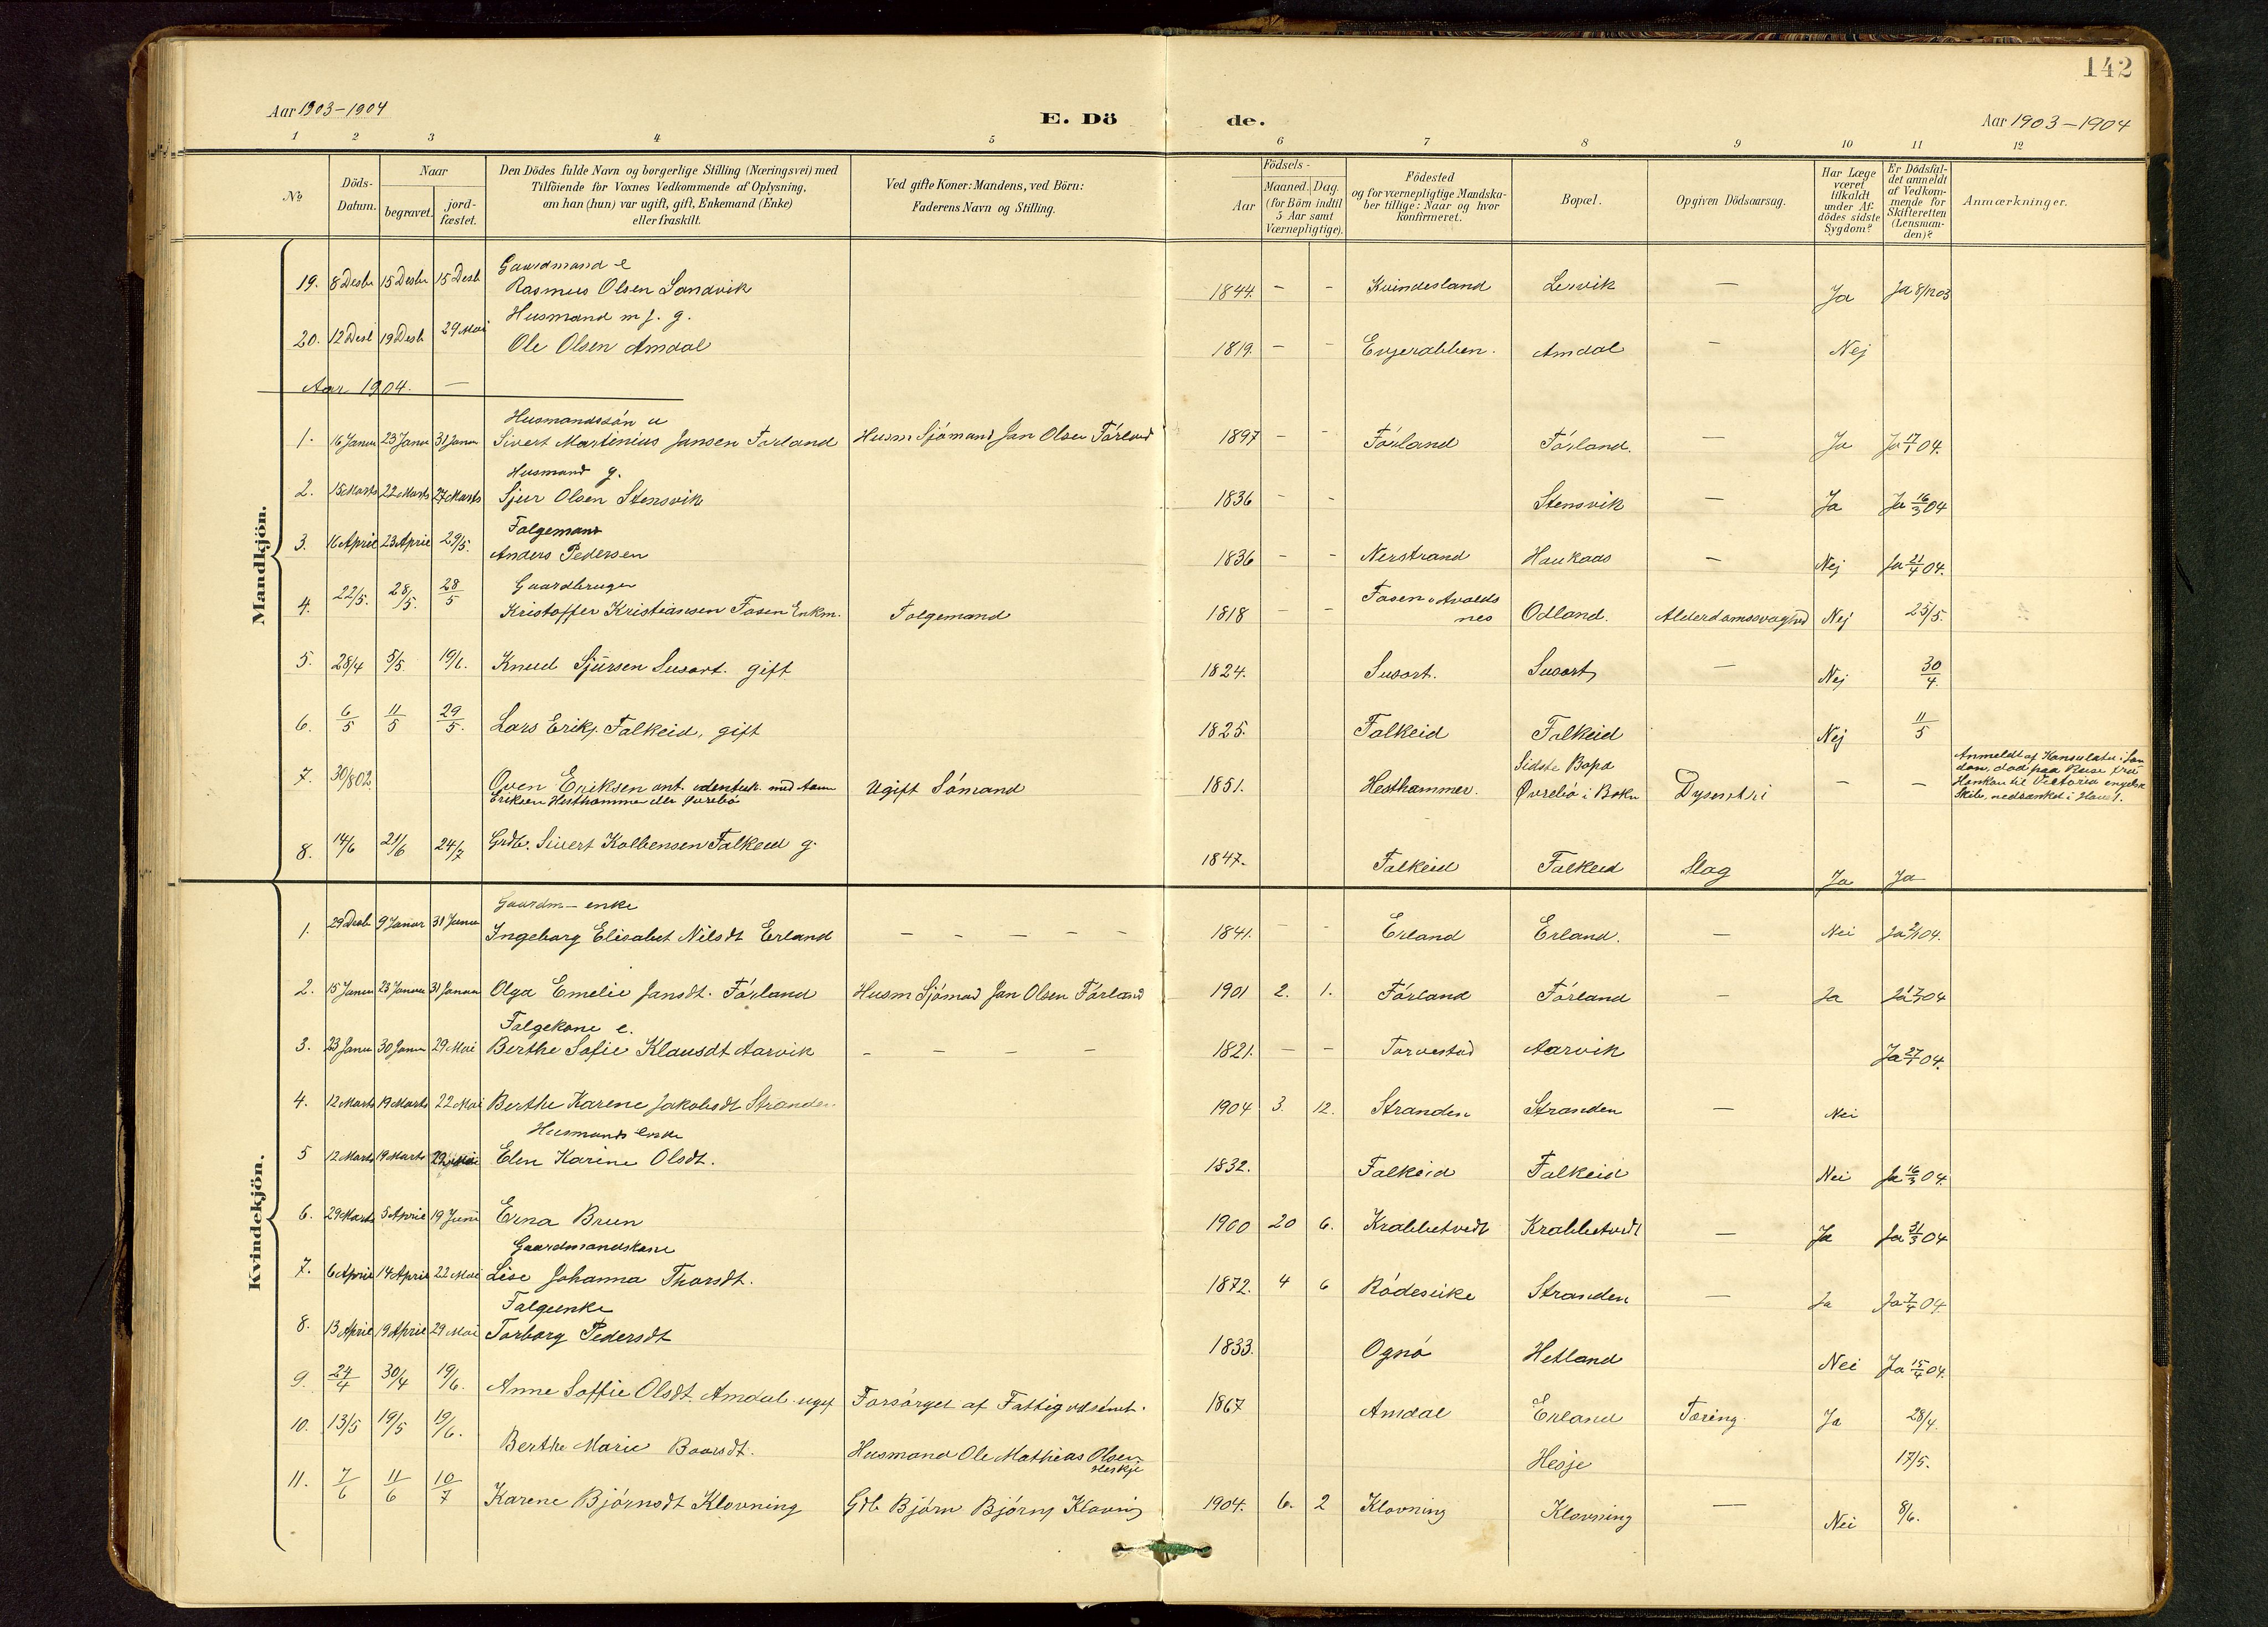 142
Aar 1903-1904
E. Dö de.
Aar 1903-1904
1 2 3 4 5 6 7 8 9 10 11 12
No
Döds-Datum.
Naar
begravet.
jord-fæstet.
Den Dödes fulde Navn og borgerlige Stilling (Næringsvei) med
Tilföiende for Voxnes Vedkommende af Oplysning,
om han (hun) var ugift, gift, Enkemand (Enke)
eller fraskilt.
Ved gifte Koner: Mandens, ved Börn:
Faderens Navn og Stilling.
Födsels-
Aar
Maaned. Dag.
(for Börn indtil
5 Aar samt
Værnepligtige).
Födested
og for værnepligtige Mandska-
ber tillige: Naar og hvor
Konfirmeret.
Bopæl.
Opgiven Dödsaarsag.
Har Læge
været
tilkaldt
under Af-
dödes sidste
Sygdom?
Er Dödsful-
det anmeldt
af Vedkom-
mende for
Skifteretten
(Lensman-
den)?
Anmærkninger.
Mandkjön.
Gaardmand e
19. 8 Desbr 15 Desbr 15 Desb Rasmus Olsen Sandvik 1844. - - Kvindesland Lesvik - Ja Ja 8/12 03
Husmand m f. g.
20. 12 Desb 19 Desb 29 Mai Ole Olsen Amdal 1819. - - Amdal - Nej
Aar 1904. -
Husmandssön u
1. 16 Janu 23 Janu 31 Janu Sivert Martenius Jansen Førland Husm Sjömand Jan Olsen Førland 1897 - - Førland Førland. - Ja Ja 17/1 04.
Husmand g.
2. 15 Marts 22 Marts 27 Marts Sjur Olsen Stensvik 1836 - - Stensvik - Ja Ja 16/3 04
Folgemand
3. 16 April 23 April 29/5. Anders Pedersen 1836 - - Nerstrand Haukaas - Nej Ja 21/4 04.
Gaardbruger
4. 22/5. 28/5. 28/5 Kristoffer Kristiansen Fosen Enkm. Folgemand 1818 - - Fosen i Avalds
nes Odland. Alderdomssvaghed Nej 25/5.
5. 28/4 5/5. 19/6. Knud Sjursen Susort. gift 1824. Susort. Susort - Nej 30/4.
6. 6/5 11/5 29/5. Lars Eriks. Falkeid, gift 1825. Falkeid Falkeid Nej 11/5
7. 30/8 02. Oven Eriksen ant. identisk med Aam
Eriksen Hesthammer eller Øvrebø Ugift Sömand 1851. Hesthammer. Sidste Bopæ
Øvrebø i Bokn Dysentri - -
Anmeldt af Konsulatet i Lon
don, död paa Reise fra
Hankau til Victoria engelsk
Skib, nedsænket i Havet.
8. 14/6 21/6 24/7 Grdb. Sivert Kolbensen Falkeid g. 1847. Falkeid Falkeid Slag Ja Ja
Kvindekjön.
Gaardm- enke
1. 29 Desb 9 Janur 31 Janur Ingeborg Elisabet Nilsdt Erland - - - - - 1841. - - Erland Erland. - Nei Ja 2/1 04.
2. 15 Janu 23 Janua 31 Janua Olga Emelie Jansdt. Førland Husm Sjömad Jan Olsen Førland 1901 2. 1. Førland Førland - Ja Ja 17/1 04
Folgekone e.
3. 23 Janu 30 Janu 29 Mai Berthe Sofie Klausdt Aarvik - - - - 1821. - - Torvestad Aarvik Ja 27/1 04.
4. 12 Marts 19 Marts 22 Mai Berthe Karene Jakobsdt Stranden 1904 3. 12. Stranden Stranden - Nei
Husmands enke
5 12 Marts 19 Marts 29 Mai Elen Karine Olsdt. 1832. Falkeid Falkeid Nei Ja 16/3 04.
6. 29 Marts 5 April 19 Juni Erna Brun 1900 20 6. Krabbetvedt Krabbetvedt - Ja Ja 31/3 04
Gaardmandskone
7. 6 April 14 April 22 Mai Lise Johanna Thorsdt. 1872. 4 6 Stranden - Ja Ja 7/4 04.
Folgeenke
8. 13 April 19 April 29 Mai Torborg Pedersdt 1833. Ognö Hetland Nei Ja 15/4 04.
9. 24/4 30/4 19/6. Anne Soffie Olsdt. Amdal ugif Forsörget af Fattigvæsenet. 1867 Amdal Erland Tæring. Ja 28/4.
10. 13/5 19/5 19/6. Berthe Marie Baarsdt. Husmand Ole Mathias Olsen
Heskje Hesje 17/5.
11. 7/6 11/6 10/7 Karene Björnsdt Klovning Gdb Björn Björns Klovnig 1904. 6. 2 Klovning Klovning - Nei 8/6.